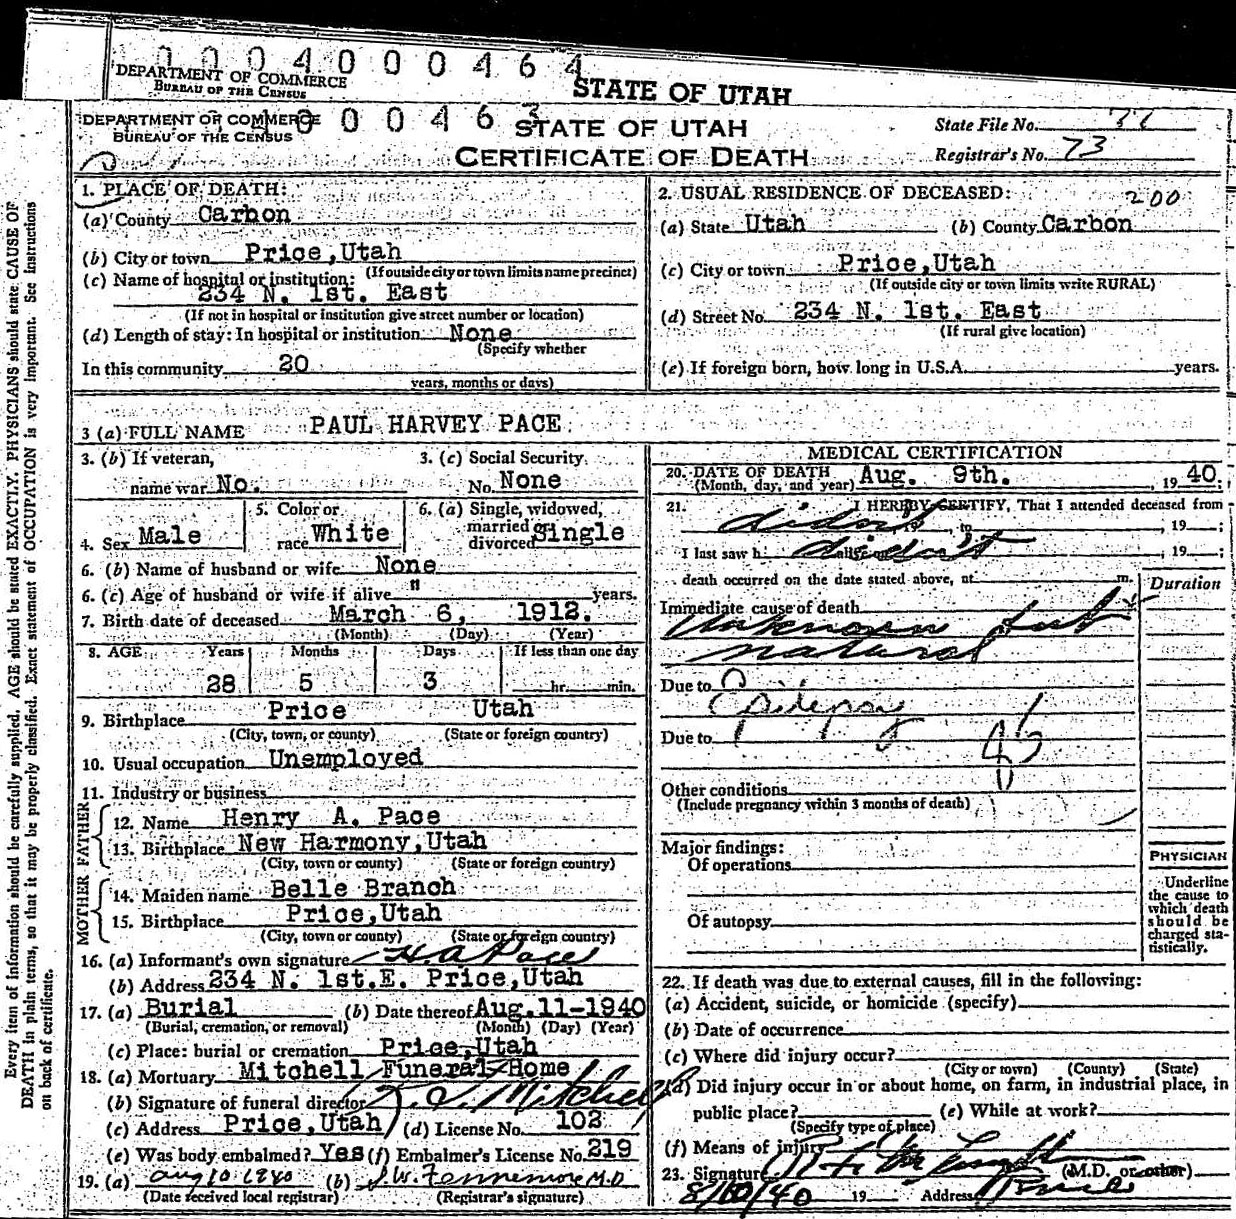 0004000464
DEPARTMENT OF COMMERCE
BUREAU OF THE CENSUS
STATE OF UTAH
DEPARTMENT OF COMMERCE
BUREAU OF THE CENSUS
000463
STATE OF UTAH
CERTIFICATE OF DEATH
State File No. 77
Registrar's No. 73
1. PLACE OF DEATH:
(a) County Carbon
(b) City or town Price,Utah
(If outside city or town limits name precinct)
(c) Name of hospital or institution:
234 N. 1st. East
(If not in hospital or institution give street number or location)
(d) Length of stay: In hospital or institution None
(Specify whether
In this community 20
years, months or days)
2. USUAL RESIDENCE OF DECEASED:
200
(a) State Utah (b) County Carbon
(c) City or town Price,Utah
(If outside city or town limits write RURAL)
(d) Street No. 234 N. 1st. East
(If rural give location)
(e) If foreign born, how long in U.S.A. years.
3 (a) FULL NAME PAUL HARVEY PACE
3. (b) If veteran,
name war No.
3. (c) Social Security
No. None
4. Sex Male
5. Color or
race White
6. (a) Single, widowed,
married
divorced Single
6. (b) Name of husband or wife None
6. (c) Age of husband or wife if alive " years.
7. Birth date of deceased March 6, 1912.
(Month) (Day) (Year)
8. AGE Years Months Days If less than one day
28 5 3 hr. min.
9. Birthplace Price Utah
(City, town, or county) (State or foreign country)
10. Usual occupation Unemployed
11. Industry or business
FATHER
12. Name Henry A. Pace
13. Birthplace New Harmony,Utah
(City, town or county) (State or foreign country)
MOTHER
14. Maiden name Belle Branch
15. Birthplace Price,Utah
(City, town or county) (State or foreign country)
16. (a) Informant's own signature H A Pace
(b) Address 234 N. 1st.E. Price,Utah
17. (a) Burial (b) Date thereof Aug.11-1940
(Burial, cremation, or removal) (Month) (Day) (Year)
(c) Place: burial or cremation Price,Utah
18. (a) Mortuary Mitchell Funeral Home
(b) Signature of funeral director Mitchell
(c) Address Price,Utah (d) License No. 102
(e) Was body embalmed? Yes (f) Embalmer's License No. 219
19. (a) Aug 10 1940 (b) J.W. Fennemore M.D
(Date received local registrar) (Registrar's signature)
MEDICAL CERTIFICATION
20. DATE OF DEATH Aug. 9th. , 19 40;
(Month, day, and year)
21. I HEREBY CERTIFY, That I attended deceased from
didn't , to , 19 ;
I last saw h alive on didn't , 19 ;
death occurred on the date stated above, at m.
Duration
Immediate cause of death
Unknown but
natural
Due to
Epilepsy
Due to
Other conditions
(Include pregnancy within 3 months of death)
Major findings:
Of operations
Of autopsy
PHYSICIAN
Underline
the cause to
which death
should be
charged sta-
tistically.
22. If death was due to external causes, fill in the following:
(a) Accident, suicide, or homicide (specify)
(b) Date of occurrence
(c) Where did injury occur?
(City or town) (County) (State)
(d) Did injury occur in or about home, on farm, in industrial place, in
public place? (e) While at work?
(Specify type of place)
(f) Means of injury
23. Signature (M.D. or other)
8/10/40 19 Address Price
Every item of information should be carefully supplied. AGE should be stated EXACTLY. PHYSICIANS should state CAUSE OF
DEATH in plain terms, so that it may be properly classified. Exact statement of OCCUPATION is very important. See instructions
on back of certificate.